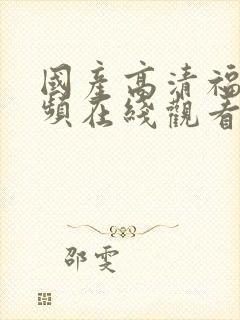 國產高清福
頻在綫觀看
邵雯